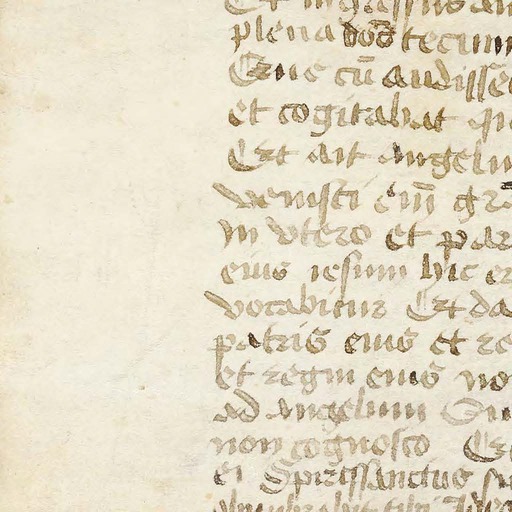 Et ingressus an
plena dōs tecum
Que cū audisse
et cogitabat q
Et ait Angelu
venisti em̄ grā
in vtero et par
eius iesum hic er
vocabitur Et da
patris eius et re
et regni eius no
ad Angelum Qu
non cognosco Et
ei Spiritssanctus su
obumbrabit tibi Ideo